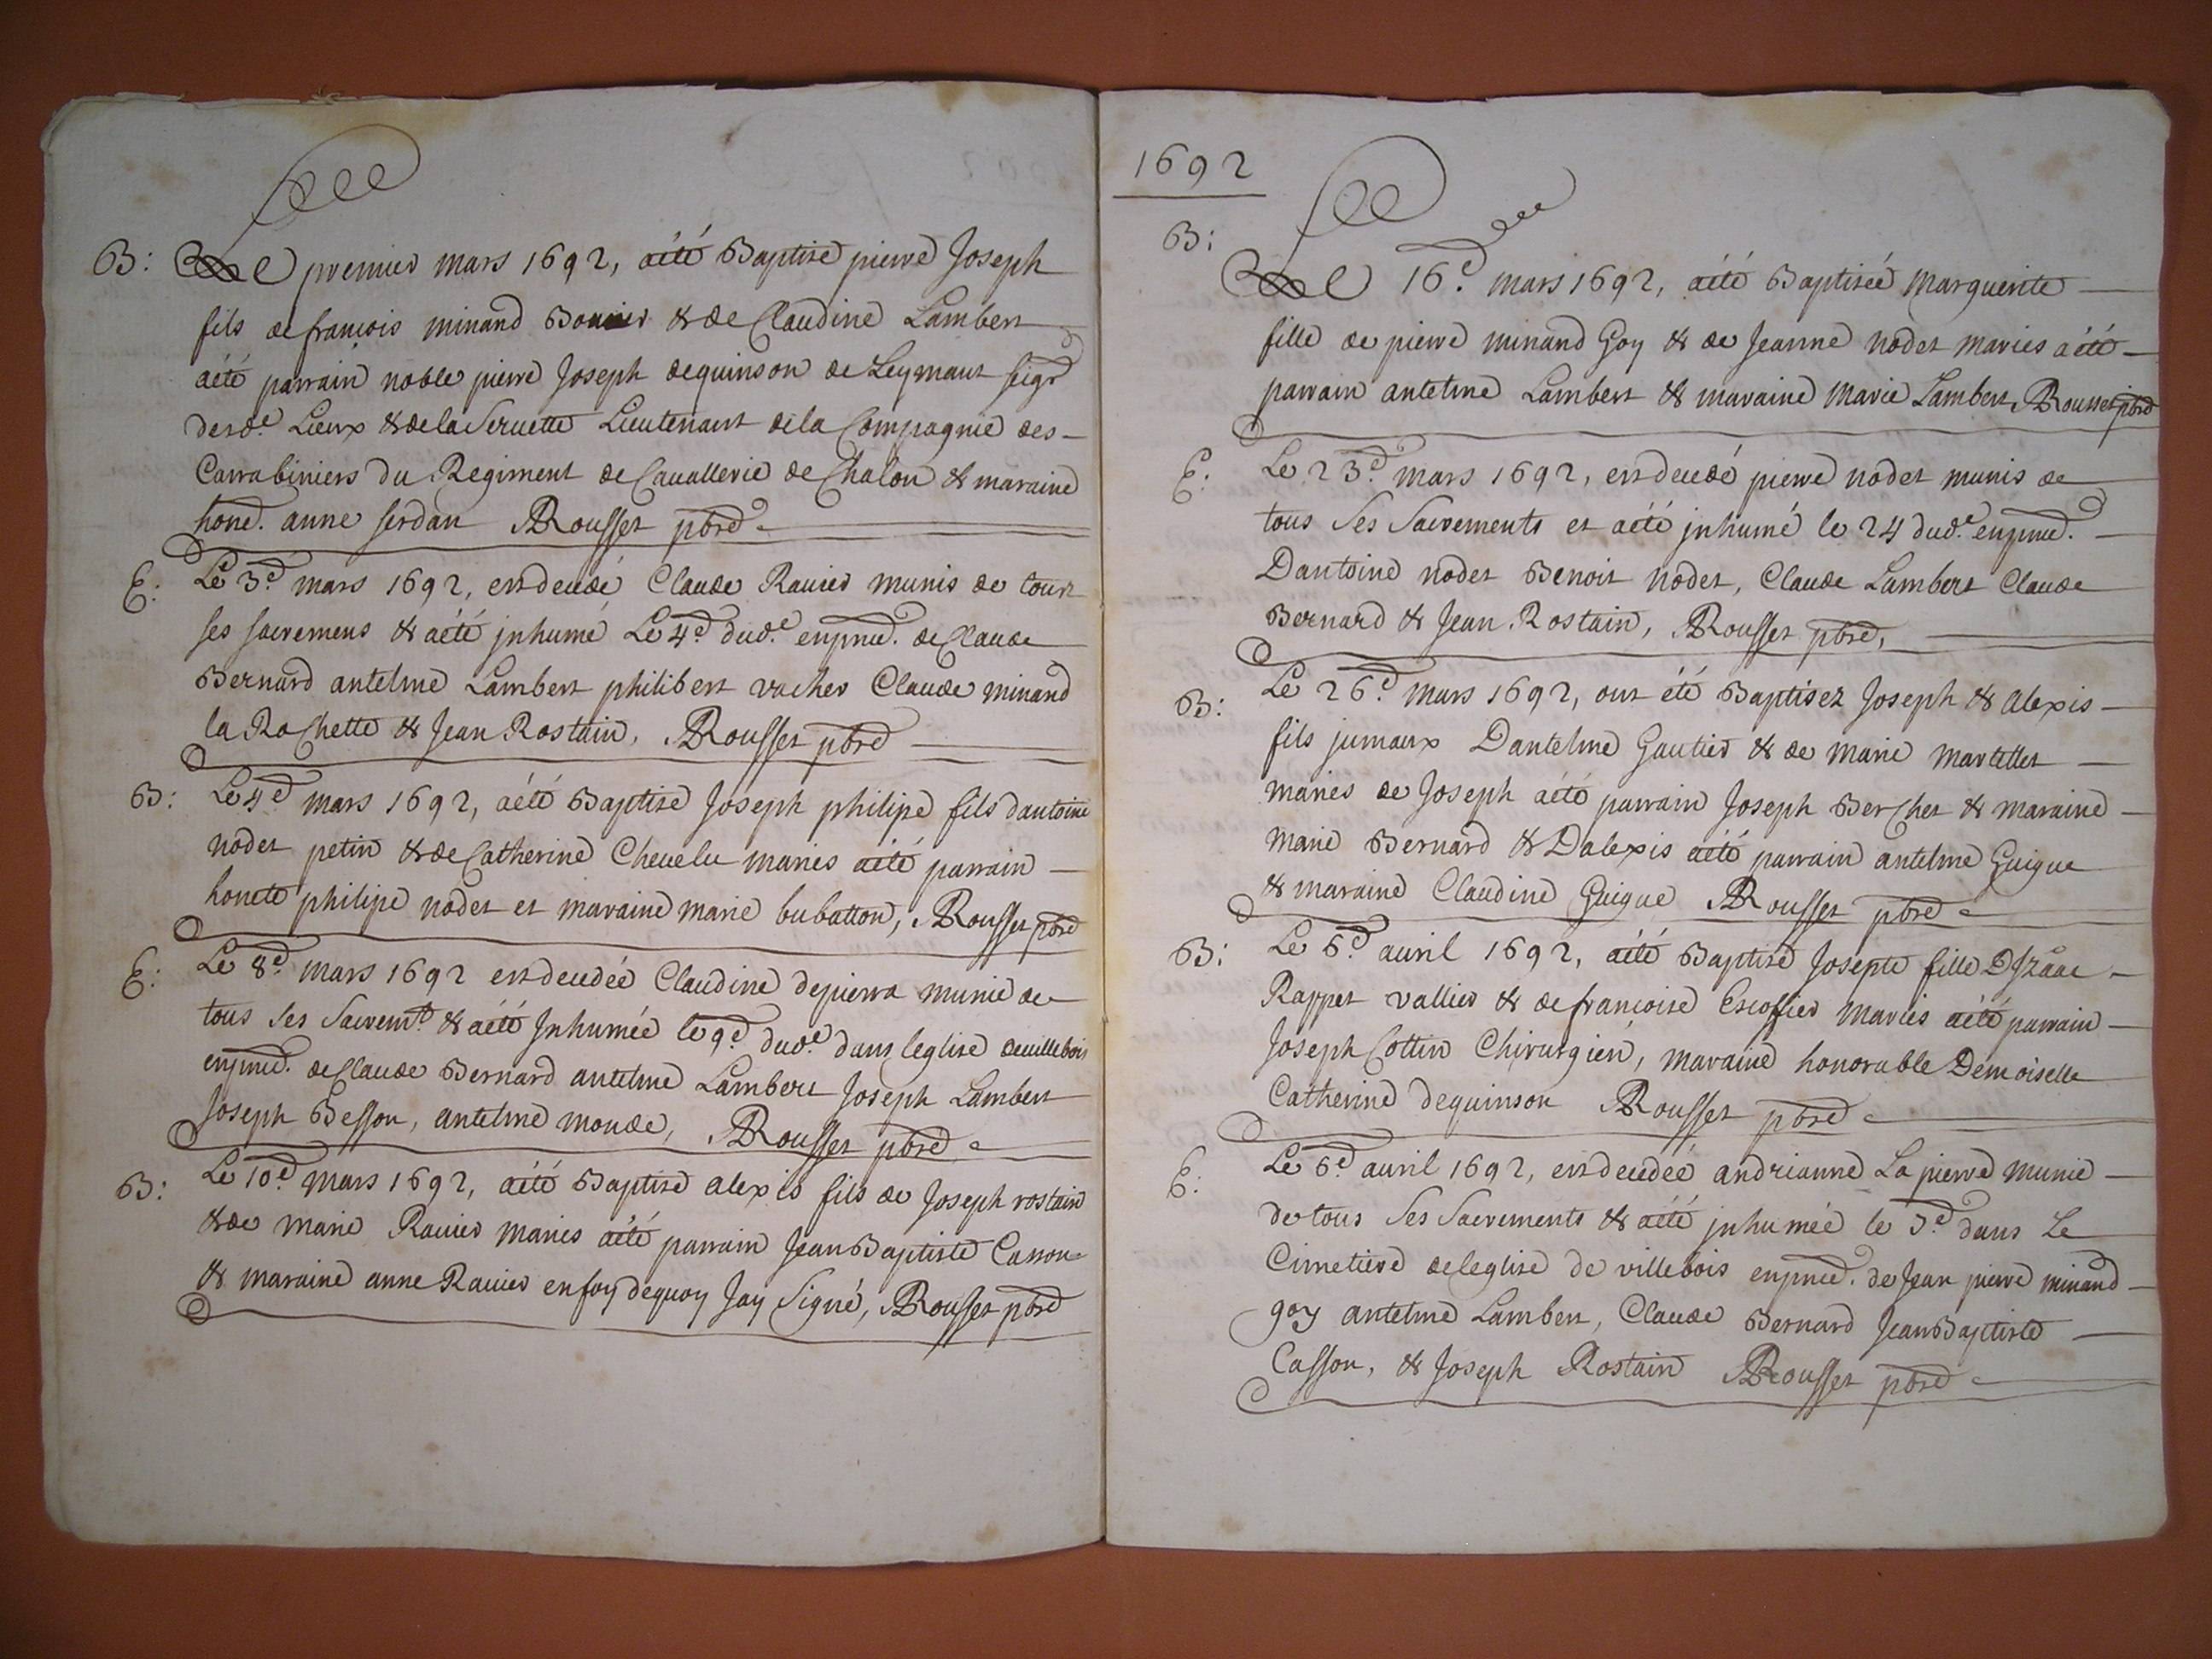 B: Le premier mars 1692, aété Baptise pierre Joseph
fils de francois minand Bouvier & de Claudine Lambert
aété parrain noble pierre Joseph dequinson de Leymant seigr
desd.e Lieux & de la Servette Lieutenant de la Compagnie des
Carrabiniers du Regiment de Cavallerie de Chalon & maraine
hone. anne serdan Rousset pbre
E: Le 3.e mars 1692, est decedé Claude Ravier munis de tout
ses sacremens & aété jnhumé Le 4.e dud.e enpnce. de Claude
Bernard antelme Lambert philibert vacher Claude minand
la Rochette & Jean Rostain, Rousset pbre
B: Le 4.e mars 1692, aété Baptise Joseph philipe fils dantoine
nodet petin & de Catherine Chevelu maries aété parrain
honete philipe nodet et maraine marie bubatton, Rousset pbre
E: Le 8.e mars 1692 est decedée Claudine depierra munie de
tous ses Sacremts & aété Jnhumée le 9.e dud.e dans leglise devillebois
enpnce. de Claude Bernard antelme Lambert Joseph Lambert
Joseph Besson, antelme monde, Rousset pbre
B: Le 10.e mars 1692, aété Baptise alexis fils de Joseph rostain
& de marie Ravier maries aété parrain Jean Baptiste Casson
& maraine anne Ravier enfoy dequoy Jay Signé, Rousset pbre
1692
B: Le 16.e mars 1692, aété Baptisée Marguerite
fille de pierre minand Goy & de Jeanne nodet maries aété
parrain antelme Lambert & maraine Marie Lambert Rousset pbre
E: Le 23.e mars 1692, est decedé pierre nodet munis de
tous ses Sacrements et aété jnhumé le 24 dud.e enpnce.
Dantoine nodet Benoit nodet, Claude Lambert Claude
Bernard & Jean Rostain, Rousset pbre,
B: Le 26.e mars 1692, ont été Baptisez Joseph & alexis
fils jumaux Dantelme Gautier & de marie martellet
maries de Joseph aété parrain Joseph Berchet & maraine
marie Bernard & Dalexis aété parrain antelme Guigue
& maraine Claudine Guigue Rousset pbre
B: Le 6.e avril 1692, aété Baptise Josepte fille DJzaac
Rappet vallier & de francoise Escoffier Maries aété parrain
Joseph Cottin Chirurgien, maraine honorable Demoiselle
Catherine dequinson Rousset pbre
E: Le 6.e avril 1692, est decedeé andrianne La pierre munie
de tous Ses Sacrements & aété jnhumée le 7.e dans Le
Cimetiere de leglise de villebois enpnce. de Jean pierre minand
goy antelme Lambert, Claude Bernard Jean Baptiste
Casson, & Joseph Rostain Rousset pbre